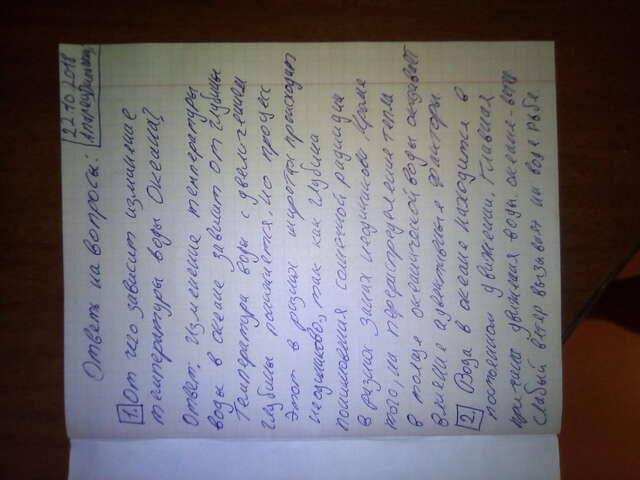 22.10.2018
Ответь на вопросы:
1. От чего зависит изминение
температуры воды Океана?
Ответ. Изменение температуры
воды в океане зависит от глубины
Температура воды с увеличением
глубины понижается. Но процесс
этот в разных широтах происходит
неодинаково, так как глубина
проникновения солнечной радиации
в разных зонах неодинакова. Кроме
того, на перераспределение тепла
в толще океанической воды оказывают
влияние адективные факторы
2 Вода в океане находится в
постоянном движении. Главная
причина движения воды океана - ветер
Слабый ветер вызывает на воде рябь.